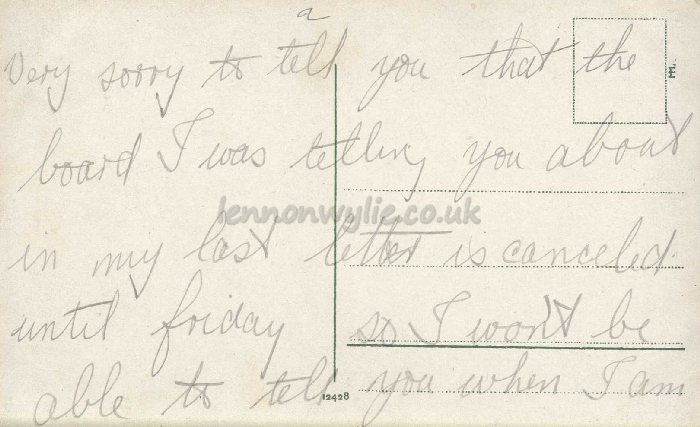 a
Very sorry to tell you that the
board I was telling you about
lennonwylie.co.uk
in my last letter is canceled
until friday so I won't be
able to tell you when I am
12428